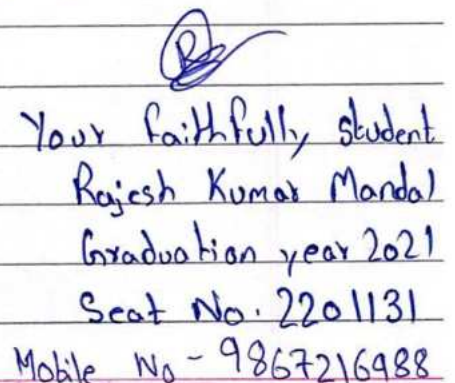 Your faithfully, student
Rajesh Kumar Mandal
Graduation year 2021
Seat No. 2201131
Mobile No - 9867216988